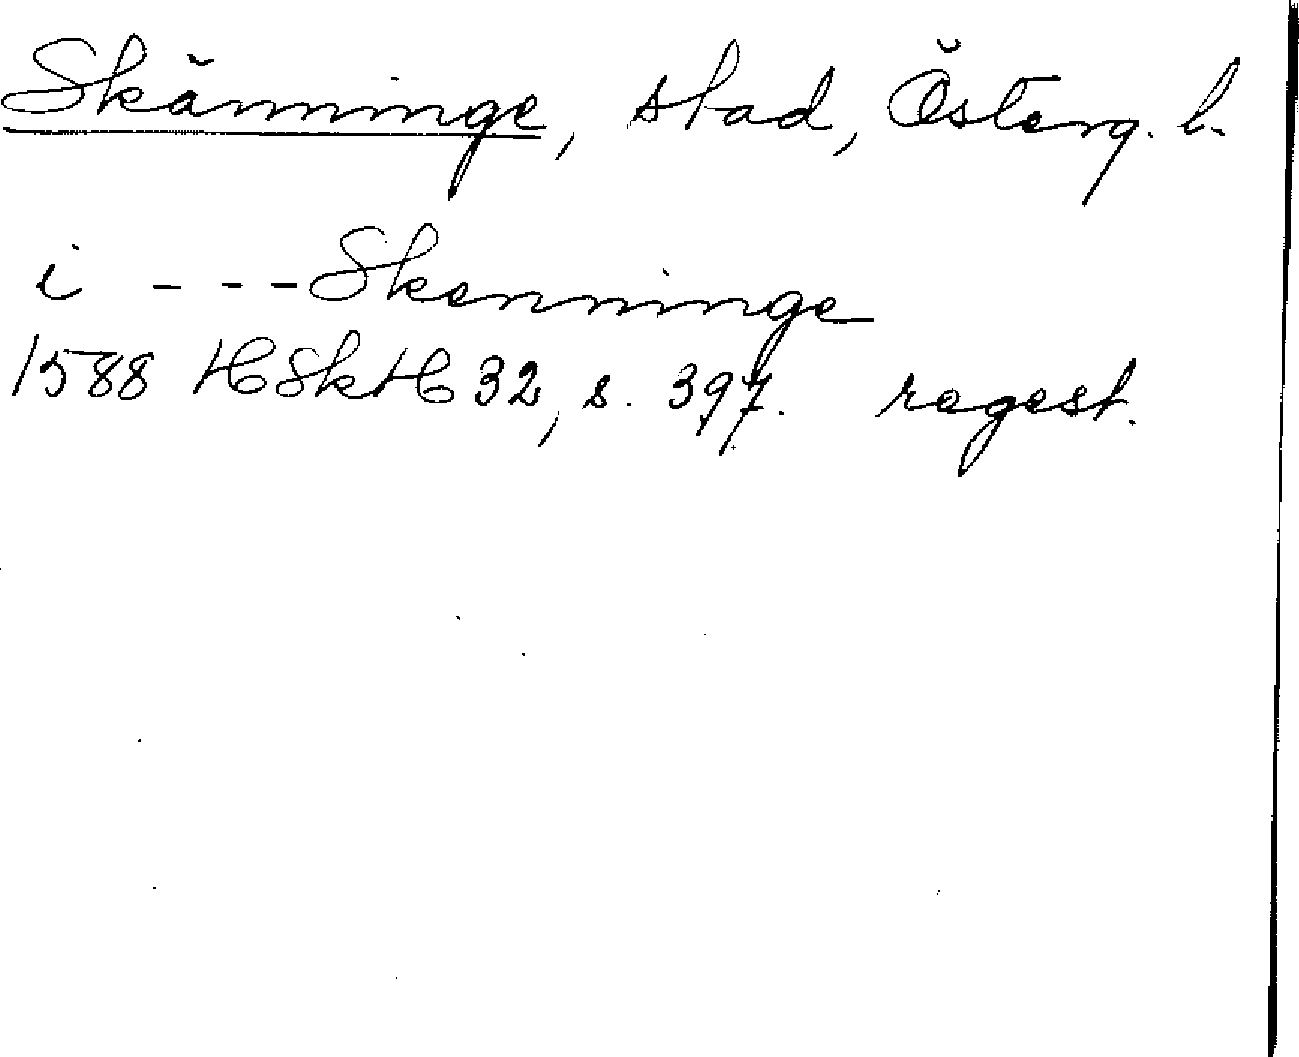 Skänninge, stad, Österg. l.
i - - - Skenninge
1588 HSkH 32, s. 397. regest.